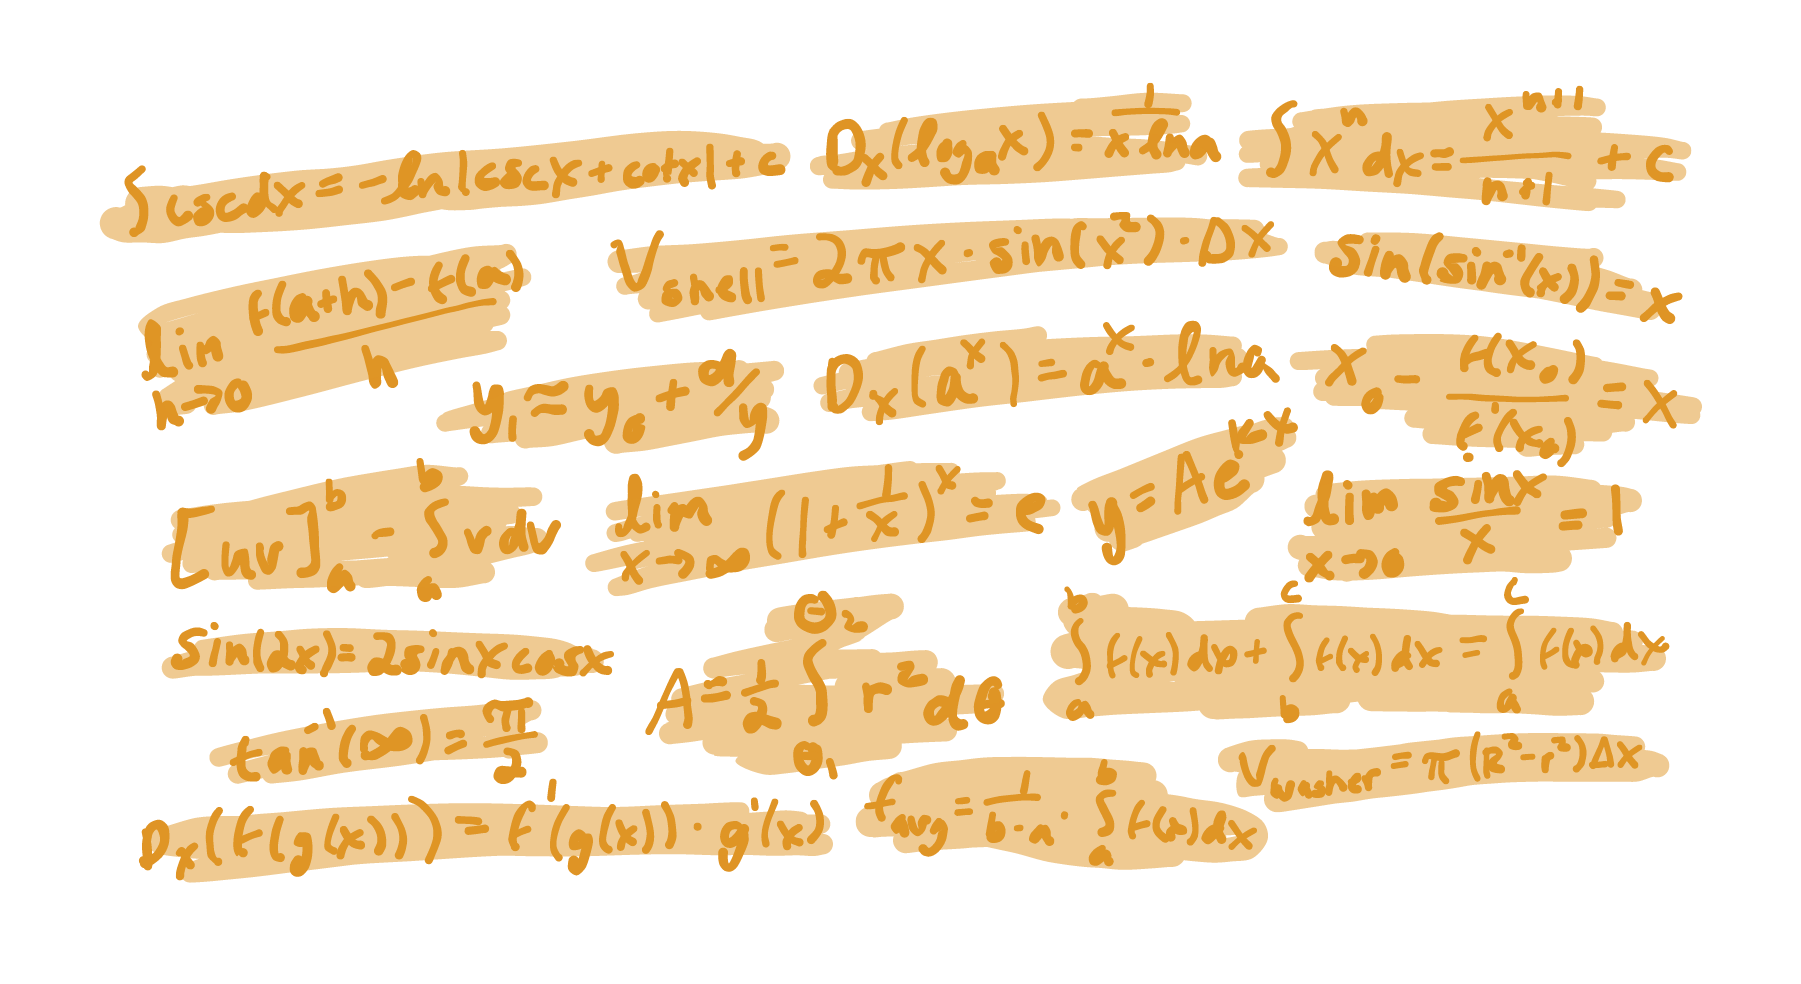 ∫cscxdx = -ln|cscx + cotx| + c
Dx(logₐx) = 1/(x lna)
∫xⁿdx = xⁿ⁺¹/(n+1) + c
lim h→0 (f(a+h) - f(a))/h
Vshell = 2πx · sin(x²) · Δx
sin(sin⁻¹(x)) = x
y₁ ≈ y₀ + d/y
Dx(aˣ) = aˣ · lna
x₀ - f(x₀)/f'(x₀) = x
[uv]ᵇₐ - ∫ₐᵇ vdv
lim x→∞ (1 + 1/x)ˣ = e
y = Ae
lim x→0 sinx/x = 1
sin(2x) = 2sinxcosx
A = 1/2 ∫θ₁^θ₂ r²dθ
∫ₐᵇ f(x)dx + ∫b^c f(x)dx = ∫ₐ^c f(x)dx
tan⁻¹(∞) = π/2
Vwasher = π(R²-r²)Δx
Dx(f(g(x))) = f'(g(x)) · g'(x)
favg = 1/(b-a) · ∫ₐᵇ f(x)dx